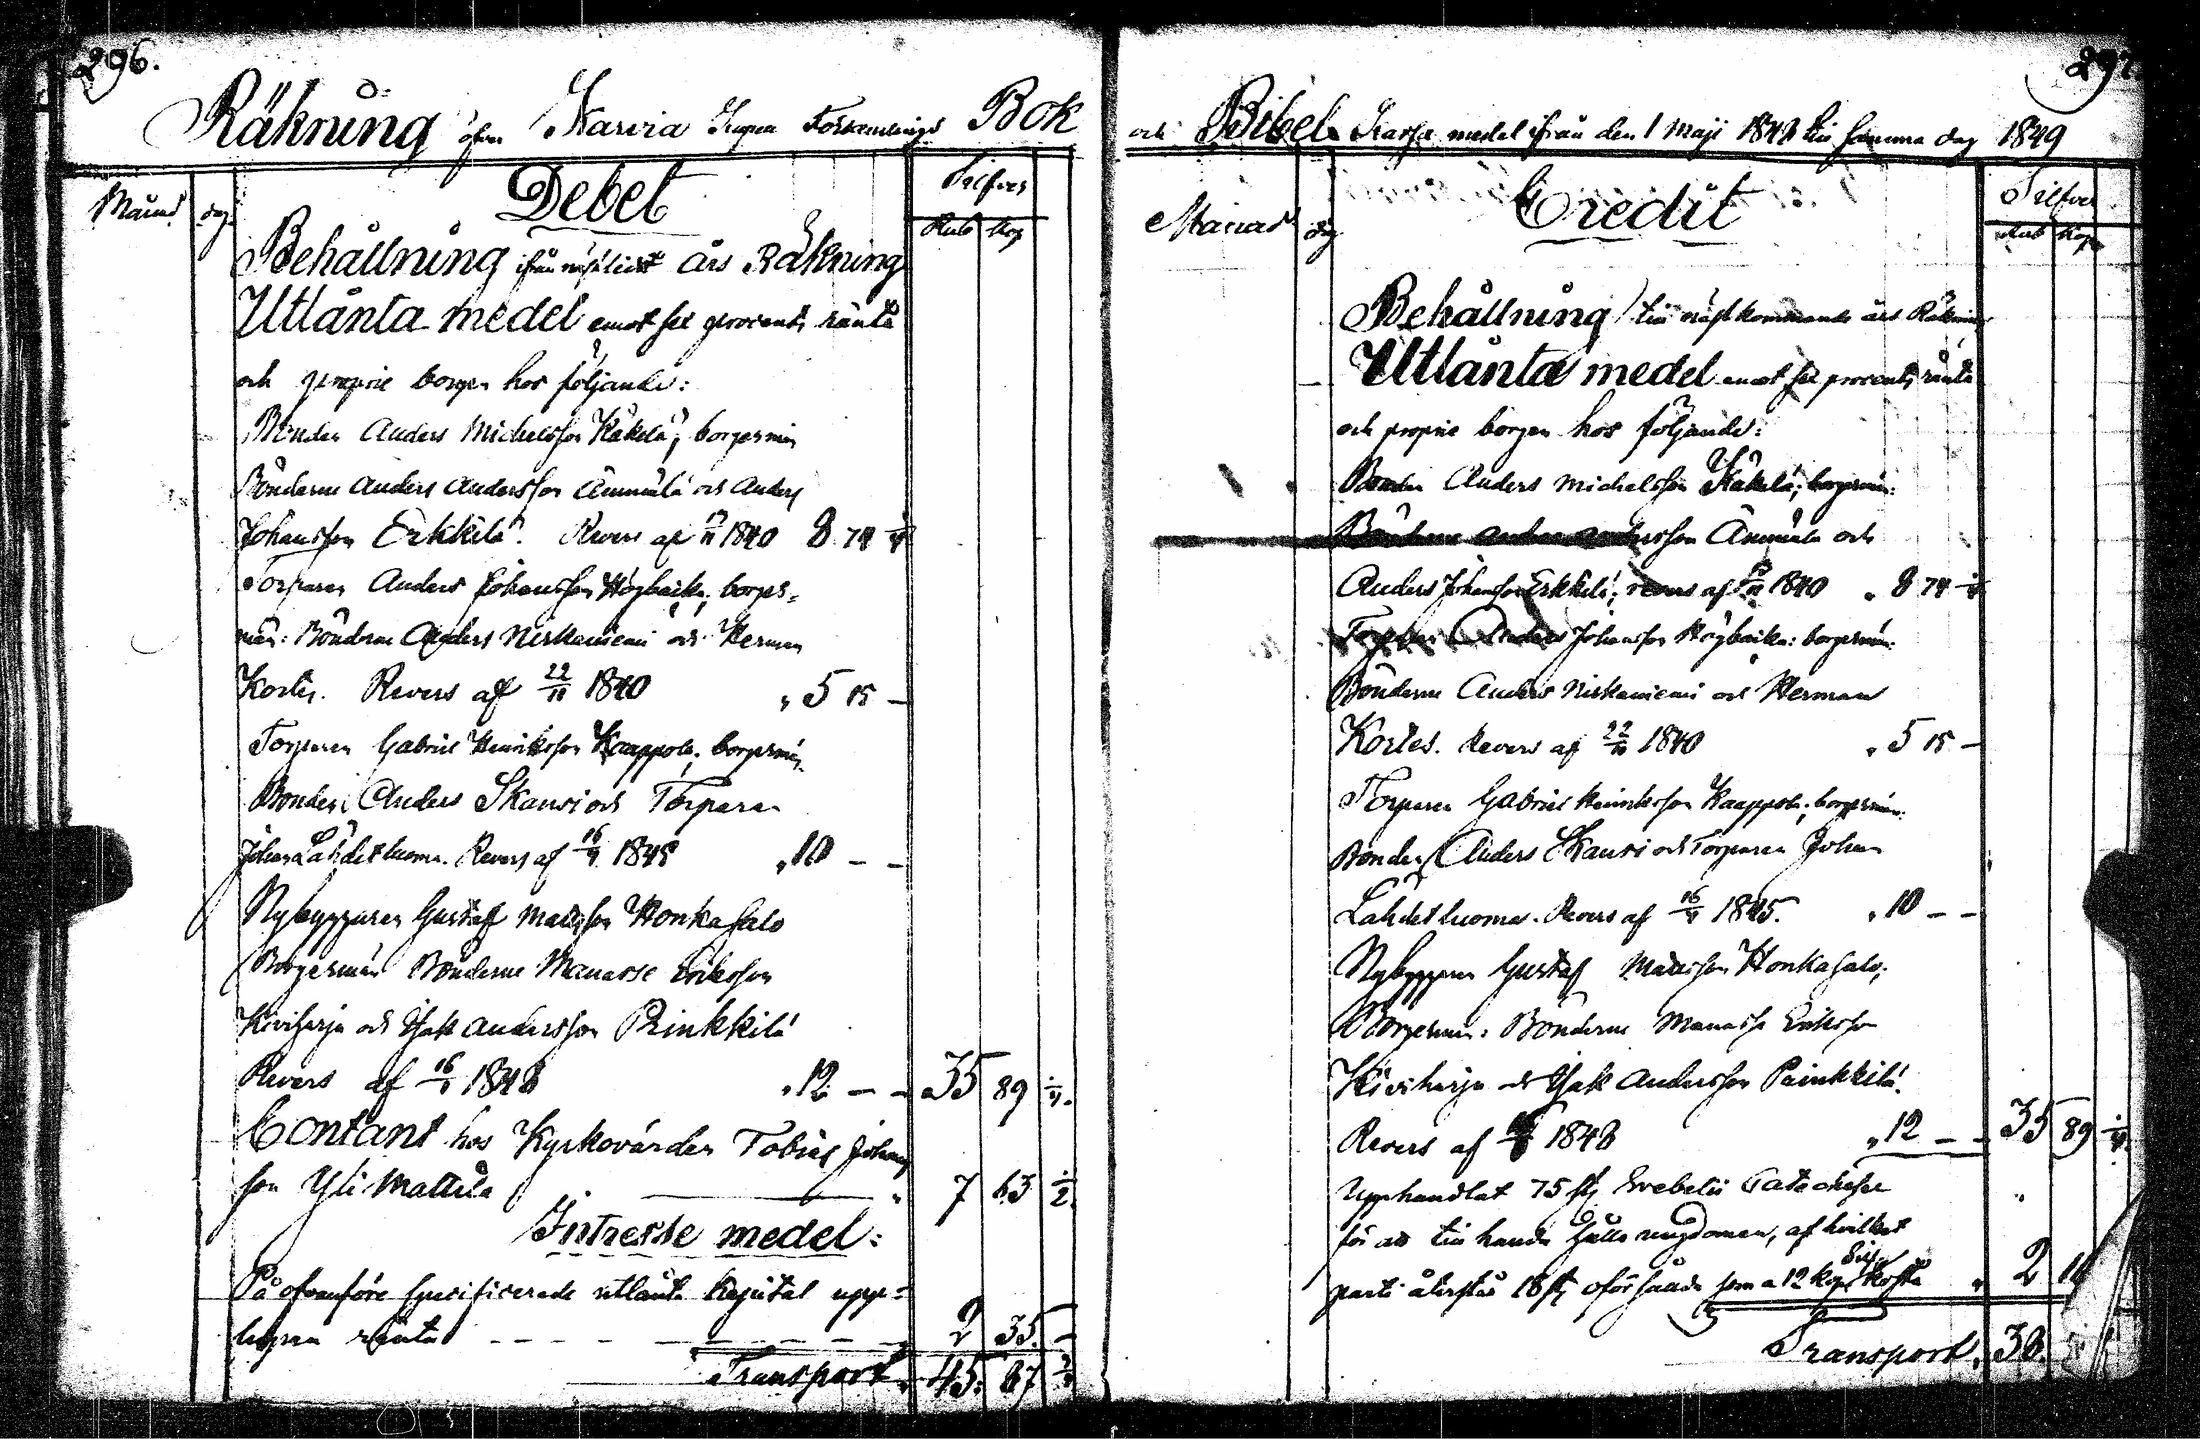 296.
Räkning öfver Karvia Församlings Bok
Debet
Månad
dag
Silfver
Rub Kop
Behållning ifrån nästlidit års Räkning
Utlånta medel emot sex procents ränta
och proprie borgen hos följande:
Bonden Anders Michelsson Käkelä; borgesmän
Bönderne Anders Andersson Ämmälä och Anders
Johansson Erkkilä. Revers af 1840 8 74
Torparen Anders Johansson Högbacka; borges-
män: Bönderne Anders Niskaniemi och Herman
Kortes. Revers af 22 1840 " 5 15 -
Torparen Gabriel Henriksson Kaappola; borgesmän
Bonden Anders Skansi och Torparen
Johan Lähdetluoma. Revers af 16 1845 " 10 - -
Nybyggaren Gustaf Mattsson Honkasalo
Borgesmän Bönderne Manasse Eriksson
Kiviharja och Isak Andersson Peinkkilä
Revers af 16 1848 " 12 - - 35 89
Contant hos Kyrkovärden Tobias Johans
son Yli Mattila " 7 63 ½
Intresse medel:
På ofvanföre specificerade utlånta Kapital upp=
lupen ränta - - - 2 35 -
Transport 45. 87
297
och Bibel Kassa medel ifrån den 1 Maji 1848 till samma dag 1849
Credit
Månad
dag
Silfver
Rub Kop
Behållning till nästkommande års Räkning
Utlånta medel emot sex procents ränta
och proprie borgen hos följande:
Bonden Anders Michelsson Käkelä; borgesmän:
Bönderne Anders Andersson Ämmälä och
Anders Johansson Erkkilä; revers af 1840 " 8 74
Torparen Anders Johansson Högbacka: borgesmän:
Bönderne Anders Niskaniemi och Herman
Kortes. Revers af 22 1840 " 5 15 -
Torparen Gabriel Henriksson Kaappola; borgesmän:
Bonden Anders Skansi och Torparen Johan
Lähdetluoma. Revers af 16 1845. " 10 - -
Nybyggaren Gustaf Mattsson Honkasalo;
Borgesmän: Bönderne Manasse Eriksson
Kiviharja och Isak Andersson Peinkkilä.
Revers af 1848 " 12 - - 35 89
Upphandlat 75 st Svebelii Catecheser
för att till handa hålla ungdomen, af hvilket
parti återstår 18 st oförsålda som a 12 kop Silfv kosta " 2 16
Transport. 38.